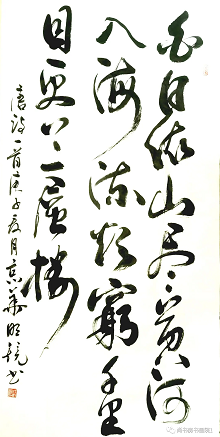 白日依山尽黄河
入海流欲穷千里
目更上一层楼
唐诗一首庚子夏月京华明镜书